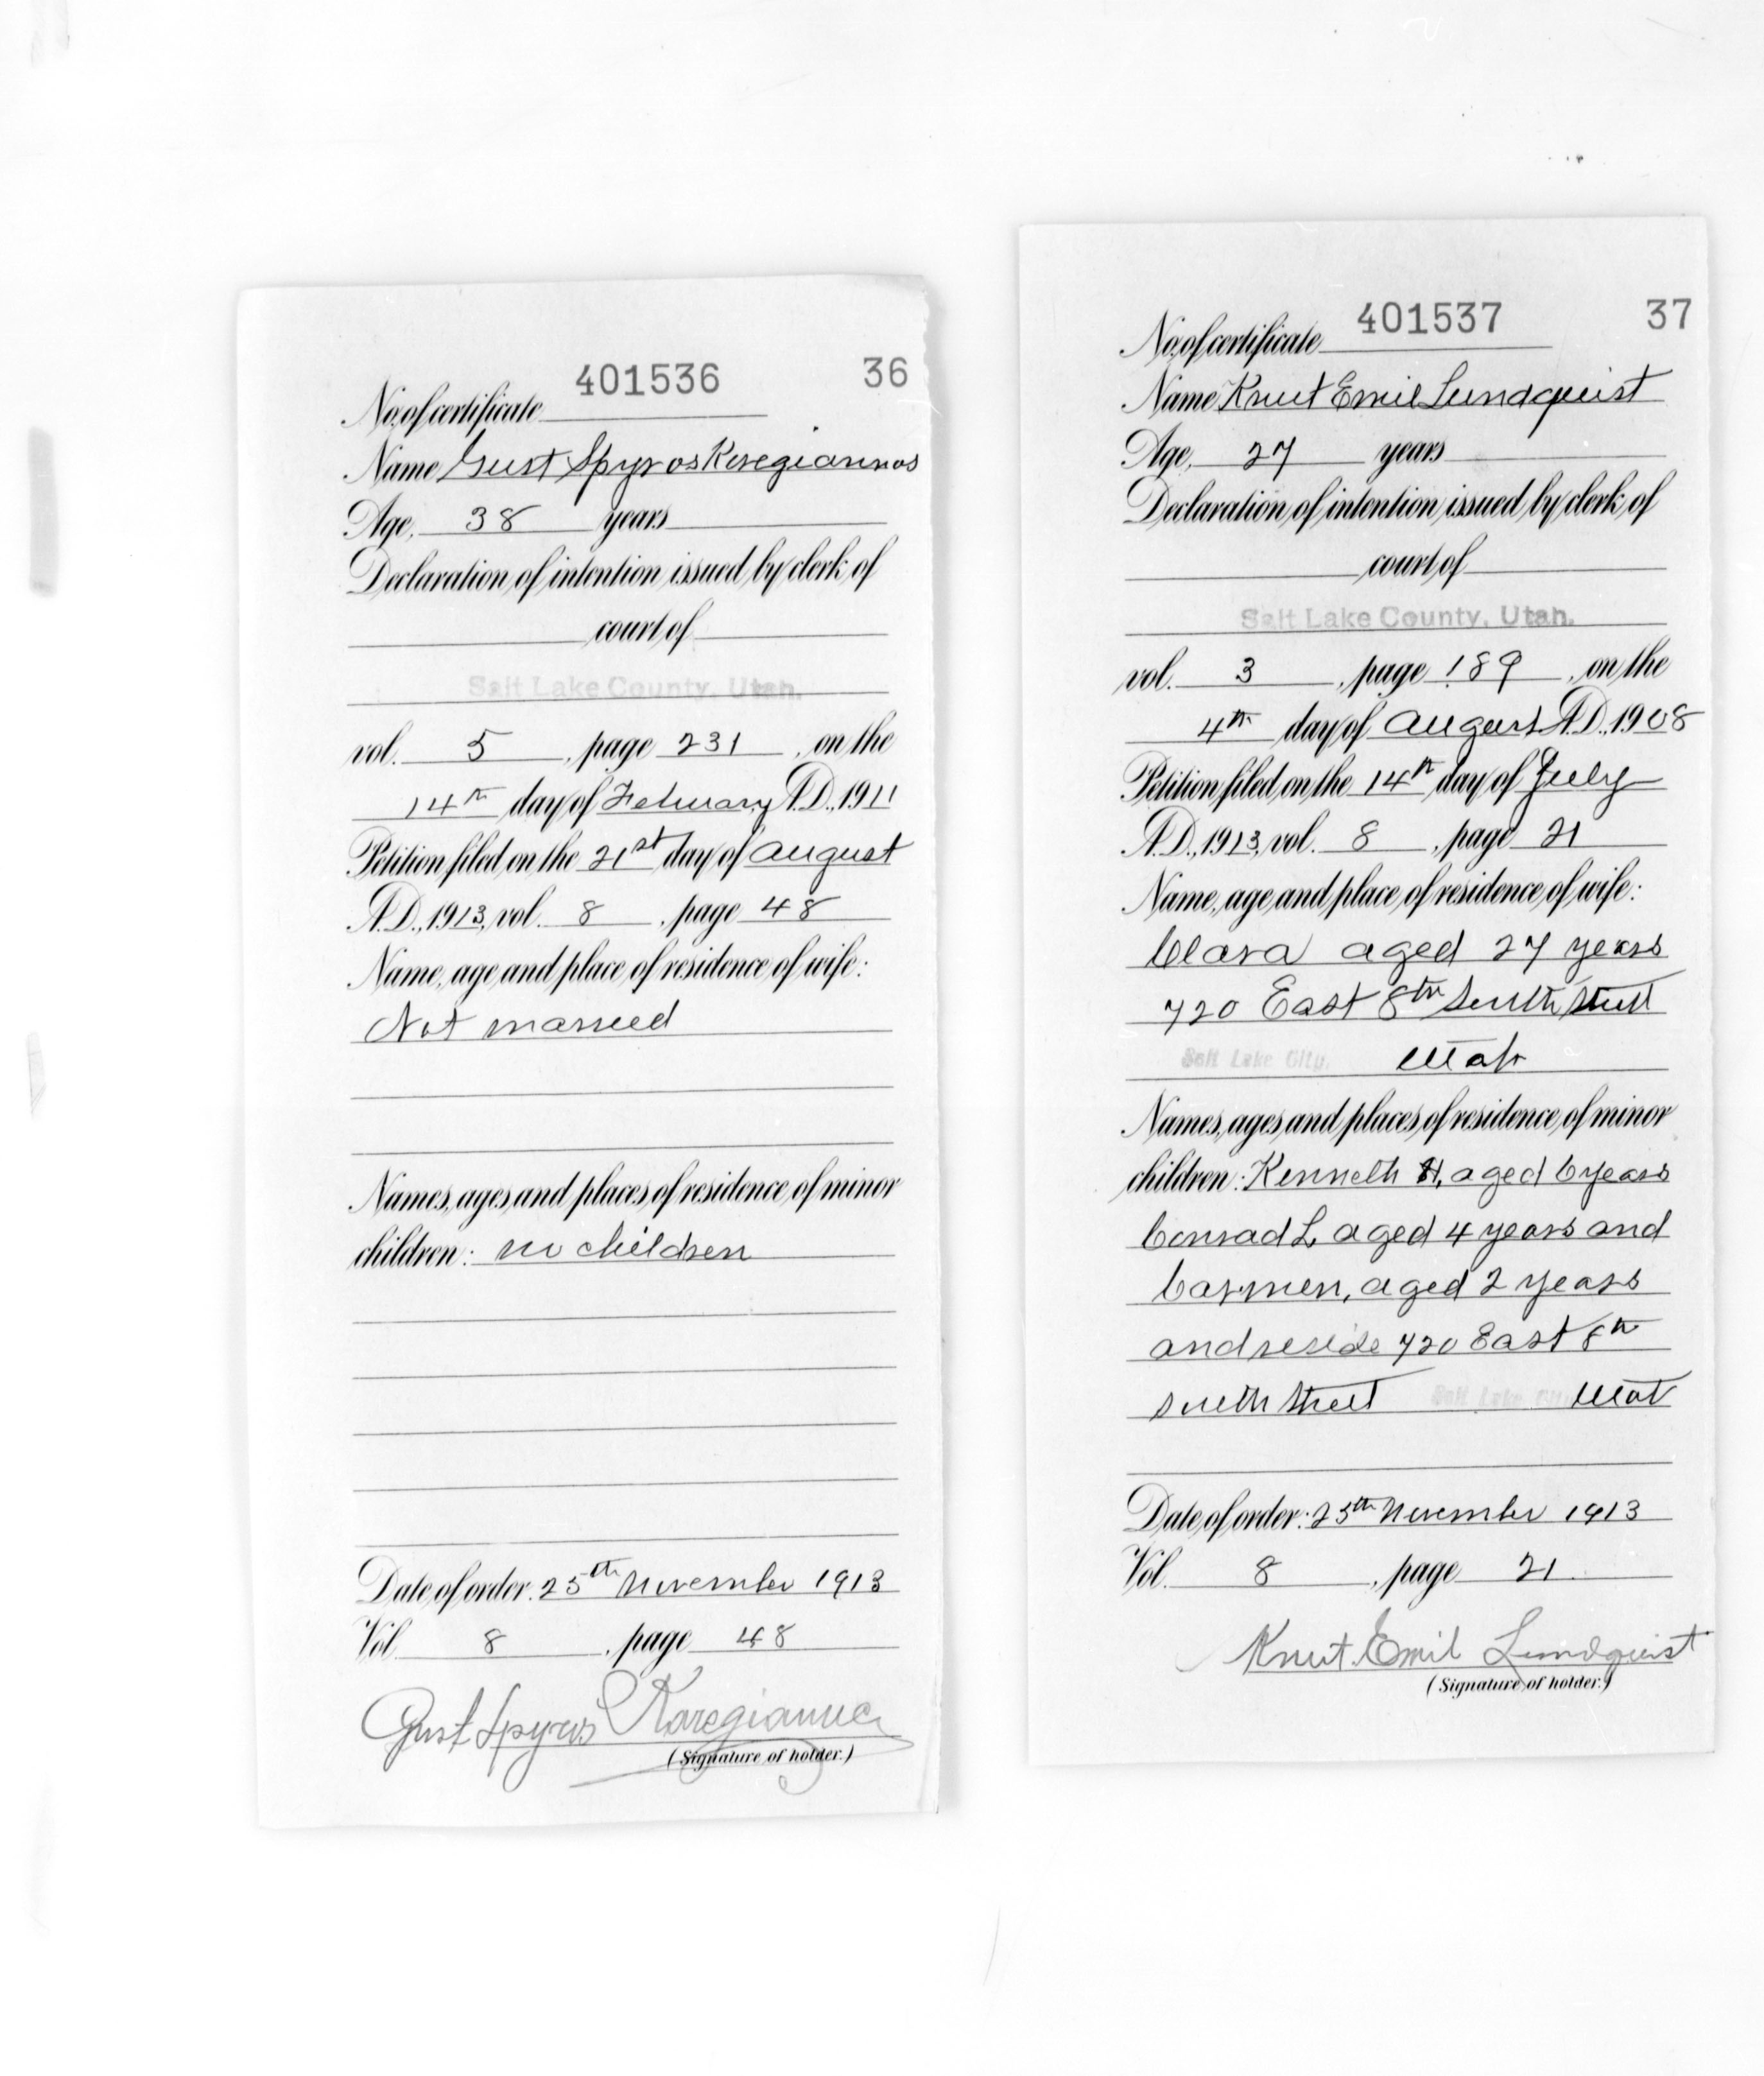 401536 36
No. of certificate
Name Gust Spyros Keregiannos
Age, 38 years
Declaration of intention issued by clerk of
court of
Salt Lake County, Utah.
vol. 5, page 231, on the
14th day of February A.D., 1911
Petition filed on the 21st day of August
A.D., 1913, vol. 8, page 48
Name, age and place of residence of wife:
Not married
Names, ages and places of residence of minor
children: no children
Date of order: 25th November 1913
Vol. 8, page 48
Gust Spyros
(Signature of holder.)
401537 37
No. of certificate
Name Knut Emil Lundquist
Age, 27 years
Declaration of intention issued by clerk of
court of
Salt Lake County, Utah.
vol. 3, page 189, on the
4th day of August A.D., 1908
Petition filed on the 14th day of July
A.D., 1913, vol. 8, page 21
Name, age and place of residence of wife:
Clara aged 27 years
720 East 8th South Street
Salt Lake City, Utah
Names, ages and places of residence of minor
children: Kenneth H, aged 6 years
Conrad L aged 4 years and
Carmen, aged 2 years
and reside 720 East 8th
South Street Salt Lake City Utah
Date of order: 25th November 1913
Vol. 8, page 21
Knut Emil Lundquist
(Signature of holder.)